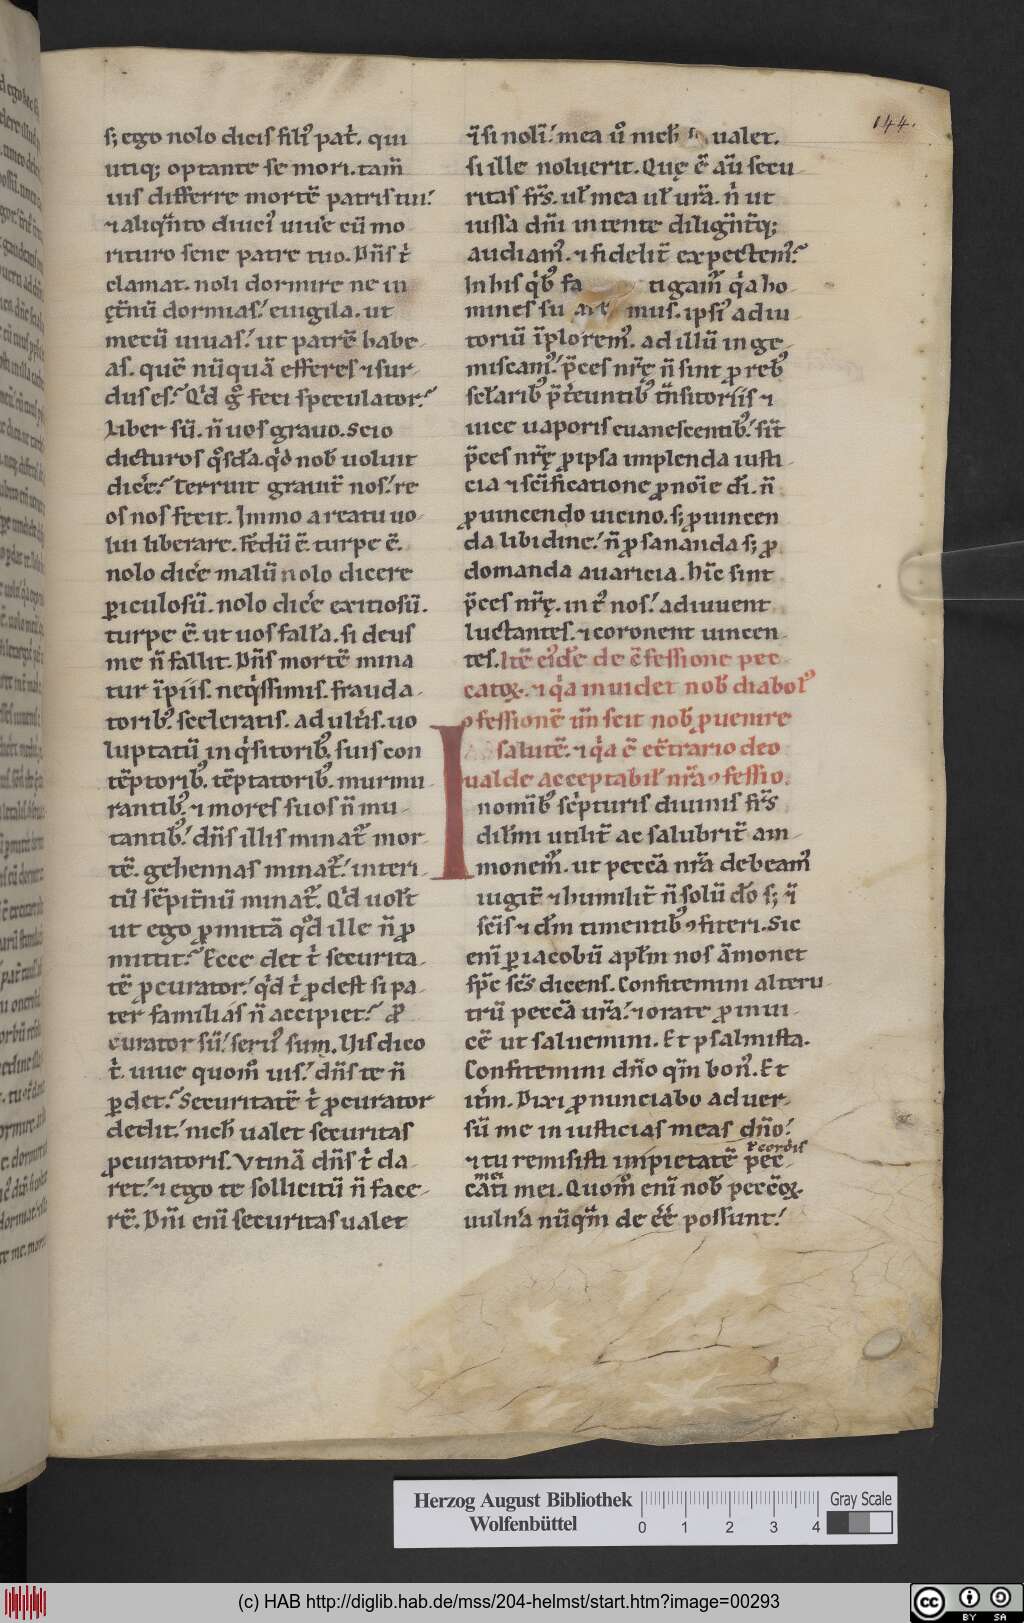 144.
s; ego nolo dicis fili᷒ pat̄. qui
utiq; optante se mori. tam̄
uis differre mortē patris tui.᷒
⁊ aliqͣnto diuci᷒ uiue᷒ cū mo
rituro sene patre tuo. Dn̄s t̄
clamat. noli dormire ne in
ęt̄nū dormias.᷒ euigila. ut
mecū uiuas.᷒ ut patrē habe
as. quē nūquā efferes ⁊ sur
dus es.᷒ Qͥd gͦ feci speculator.᷒
Liber sū. n̄ uos grauo. Scio
dicturos qͦsda̅. qͥd nob̄ uoluit
dice᷒.᷒ Terruit grauit̄ nos.᷒ re
os nos fecit. Immo a reatu uo
lui liberare. Fedū ē. turpe ē.
nolo dice᷒ malū nolo dicere
ꝑiculosū. nolo dice᷒ exitiosū.
turpe ē. ut uos falla̅. si deus
me n̄ fallit. Dn̄s mortē mina
tur īpiis. neqͥssimis. frauda
torib᷒. sceleratis. adult̄is. uo
luptatū inqͥsitorib᷒. suis con
tēptorib᷒. tēptatorib᷒. murmu
rantib᷒. ⁊ mores suos n̄ mu
tantib᷒.᷒ dn̄s illis minat᷒ mor
tē. gehennas minat᷒.᷒ interi
tū sēpit̄nū minat᷒. Qͥd uolt̄
ut ego ꝓmittā qͦd ille n̄ ꝓ
mittit.᷒ Ecce det t̄ securita
tē ꝓcurator.᷒ qͥd t̄ ꝓdest si pa
ter familias n̄ accipiet.᷒ Ꝓ
curator sū.᷒ seru᷒ sum. Uis dico
t̄. uiue quom̊ uis.᷒ dn̄s te n̄
ꝑdet.᷒ Securitatē t̄ ꝓcurator
dedit.᷒ nich̄ ualet securitas
ꝓcuratoris. Vtinā dn̄s t̄ da
ret.᷒ ⁊ ego te sollicitū n̄ face
rē. Dn̄i eni̅ securitas ualet
⁊̄ si noli̅.᷒ mea ů nich̄ ualet.
si ille noluerit. Quę ē au̅ secu
ritas fr̄s. ul̄ mea ul̄ ur̄a. n̄ ut
iussa dn̄i intente dilign̄tq;
audiam᷒. ⁊ fidelit̄ expectem᷒.᷒
In his qͥb᷒ fa tigam̄ qͥa ho
mines su mus. ipsi᷒ adiu
toriū īplorem᷒. ad illū inge
miscam᷒.᷒ p̄ces nr̄ę n̄ sint ꝓ reb᷒
scl̄arib᷒ p̄t̄euntib᷒ tn̄sitoriis ⁊
uice uaporis euanescentib᷒.᷒ sit̄
p̄ces nr̄ę ꝓ ipsa implenda iusti
cia ⁊ sc̄ificatione ꝓ noi̅e dī. n̄
ꝓ uincendo uicino. s; ꝓ uincen
da libidine.᷒ n̄ ꝓ sananda s; ꝓ
domanda auaricia. Hīc sint
p̄ces nr̄ę. int̄ nos.᷒ adiuuent
luctantes. ⁊ coronent uincen
tes. Itē ei᷒de̅ de ꝯfessione pec
catoꝝ. ⁊ qͥa inuidet nob̄ diabol᷒
ꝯfessionē un̄ scit nob̄ ꝓuenire
salutē. ⁊ qͥa ē cōtrario deo
ualde acceptabil᷒ nr̄a ꝯfessio.
In omīb᷒ sc̄pturis diuinis fr̄s
dil̄mi utilit̄ ac salubrit̄ am
monem᷒. ut peccā nr̄a debeam᷒
iugit̄ ⁊ humilit̄ n̄ solū do̅ s; ⁊̄
sc̄is ⁊ dm̄ timentib᷒ ꝯfiteri. Sic
eni̅ ꝑ iacobū apl̄m nos āmonet
sp̄c sc̄s dicens. Confitemini alteru
trū peccā ur̄a.᷒ ⁊ orate ꝓ inui
cē ut saluemini. Et psalmista.
Confitemini dn̄o qm̄ bon᷒. Et
it̄m. Dixi ꝓnunciabo aduer
sū me iniusticias meas dn̄o.᷒
⁊ tu remisisti impietatē pec ł cordis
cati mei. Quom̊ eni̅ nob̄ peccōꝝ mei
uuln̄a nūqͣm dee᷒e᷒ possunt.᷒
Herzog August Bibliothek
Wolfenbüttel
0 1 2 3 4
Gray Scale
(c) HAB http://diglib.hab.de/mss/204-helmst/start.htm?image=00293
cc BY SA